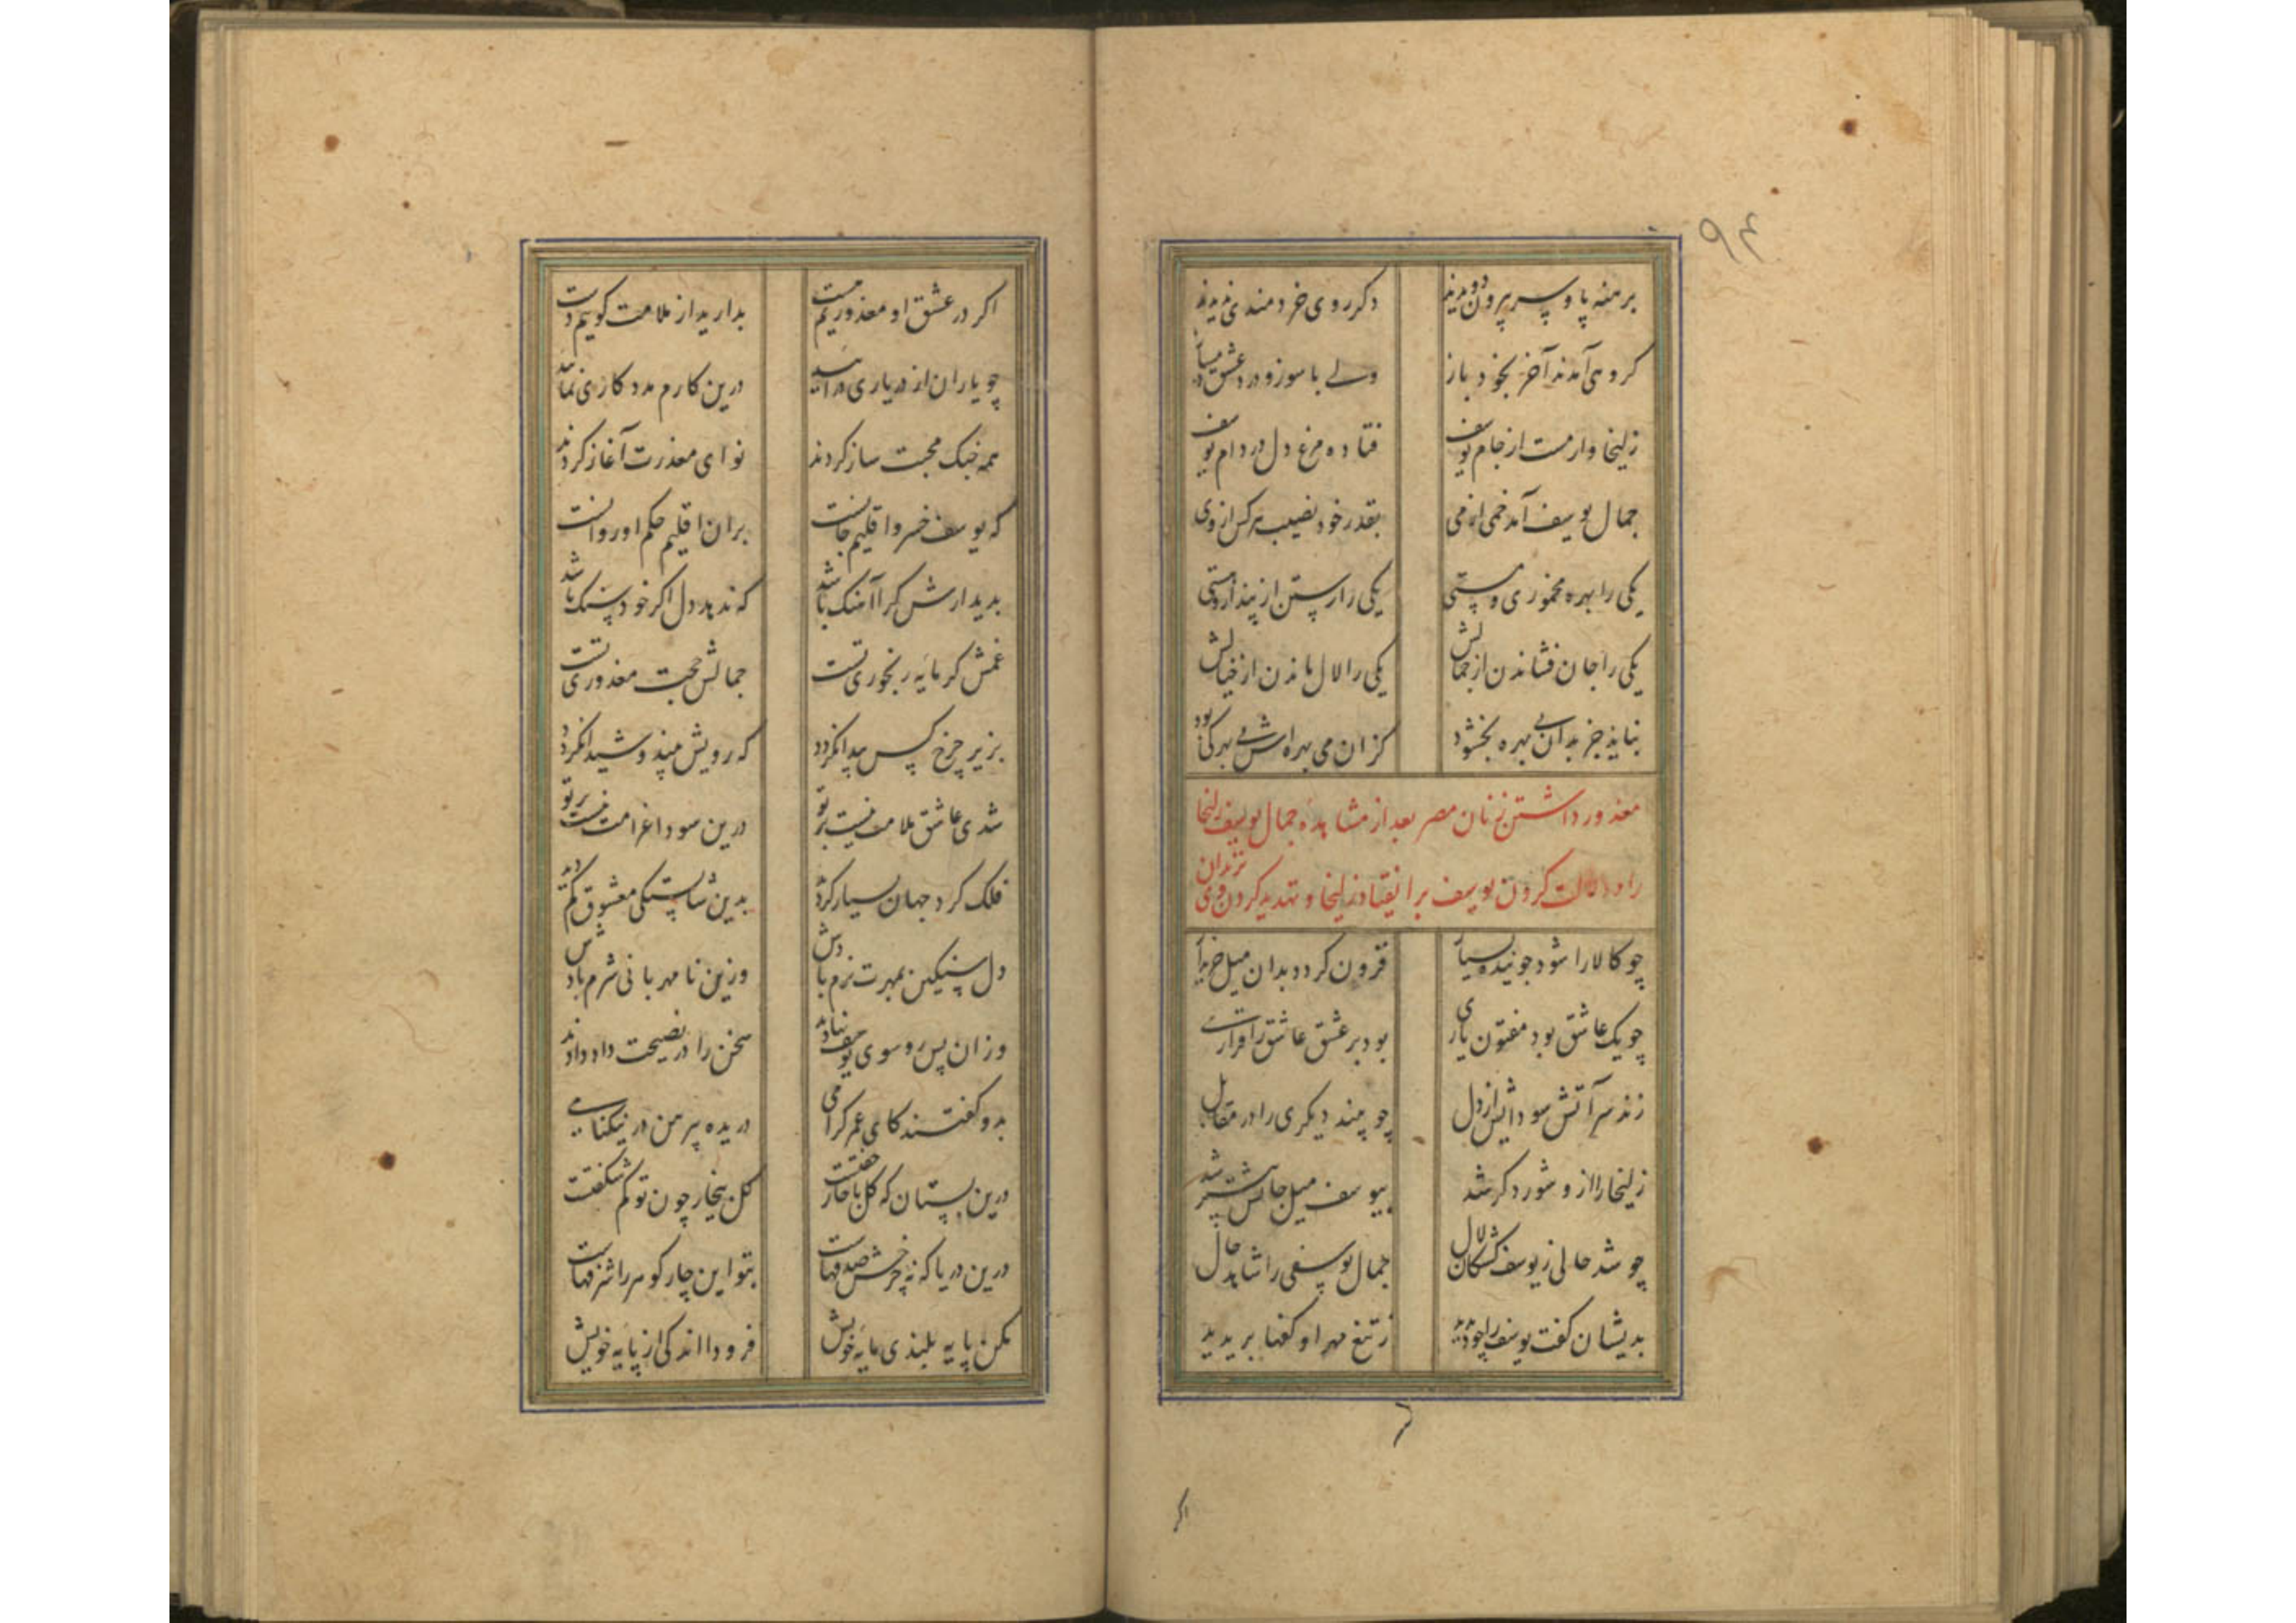 ۹۴
برهنه پا و سر بیرون دویدند دکر روی خردمندی ندیدند
کروهی آمدند آخر بخود باز ولی با سوز و درد عشق دمساز
زلیخا وار مست از جام یوسف فتاده مرغ دل در دام یوسف
جمال یوسف آمد خمی از می بقدر خود نصیب هر کس از وی
یکی را بهره مخموری و مستی یکی را رستن از پندار هستی
یکی را جان فشاندن از جمالش یکی را لال ماندن از خیالش
نباید جز بدان بی بهره بخشود کزان می بهره اش بی بهرکی بود
معذور داشتن زنان مصر بعد از مشاهدهٔ جمال یوسف زلیخا
را و دلالت کردن یوسف بر انقیاد زلیخا و تهدید کردن وی بزندان
چو کالا را شود جوینده بسیار فزون کردد بدان میل خریدار
چو یک عاشق بود مفتون یاری بود بر عشق عاشق را قراری
زند سر آتش سودایش از دل چو بیند دیکری را در مقابل
زلیخا را از و شور دکر شد بیوسف میل جانش بیشتر شد
چو شد حالی ز یوسف کشکان لال جمال یوسفی را شاهد حال
بدیشان کفت یوسف را چو دیدید ز تیغ مهر او کفها بریدید
اکر
اکر در عشق او معذوریم هست بدارید از ملامت کوییم دست
چو یاران از در یاری درآیید درین کارم مددکاری نمایید
همه چنک محبت ساز کردند نوای معذرت آغاز کردند
که یوسف خسرو اقلیم جانست بران اقلیم حکم او روانست
بدیدارش کرا آهنک باشد که ندهد دل اکر خود سنک باشد
غمش کر مایه رنجوری تست جمالش حجت معذوری تست
بزیر چرخ کس پیدا نکردد که رویش بیند و شیدا نکردد
شدی عاشق ملامت نیست بر تو درین سودا غرامت نیست بر تو
فلک کرد جهان بسیار کردد بدین شایستکی معشوق کم دید
دل سنکین بمهرت نرم بادش وزین نامهربانی شرم بادش
وزان پس رو سوی یوسف نهادند سخن را در نصیحت داد دادند
بدو کفتند کای عمر کرامی دریده پیرهن در نیکنامی
درین بستان که کل با خار جفتست کل بیخار چون تو کم شکفتست
درین دریا که نه چرخش صدفهاست بتو این چار کوهر را شرفهاست
مکن پایه بلندی مایه خویش فرود آ اندکی از پایه خویش